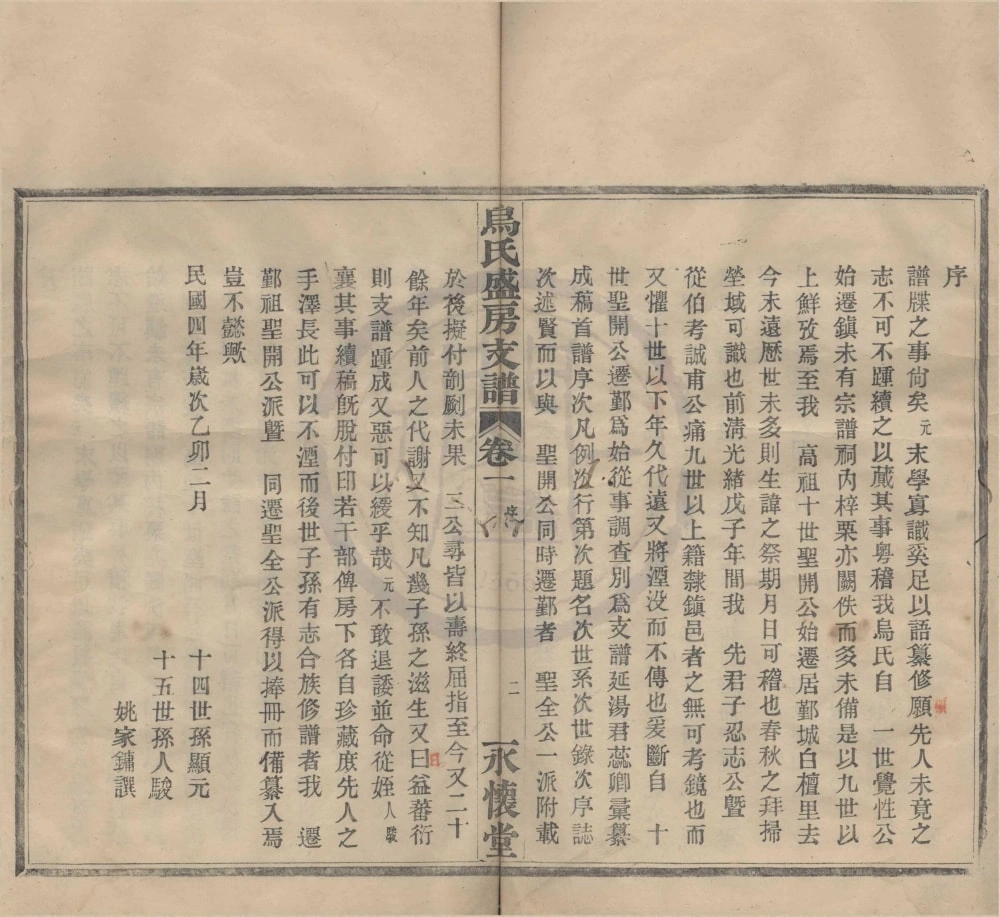 序
譜牒之事尙矣元末學寡識奚足以語纂修願先人未竟之
志不可不踵續之以蕆其事粵稽我烏氏自 一世覺性公
始遷鎮未有宗譜祠內梓栗亦闕佚而爻未備是以九世以
上鮮攷焉至我 高祖十世聖開公始遷居鄞城白檀里去
今未遠歷世未多則生諱之祭期月日可稽也春秋之拜掃
塋域可識也前淸光緖戊子年間我 先君子忍志公曁
從伯考誠甫公痛九世以上籍隸鎮邑者之無可考鏡也而
又懼十世以下年久代遠又將湮没而不傳也爰斷自 十
世聖開公遷鄞爲始從事調查別爲支譜延湯君蕊卿彙纂
成稿首譜序次凡例次行第次題名次世系次世錄次序誌
次述賢而以與 聖開公同時遷鄞者 聖全公一派附載
烏氏盛房支譜 卷一 序 二 永懷堂
於後擬付剞劂未果 三公尋皆以壽終屈指至今又二十
餘年矣前人之代謝又不知凡幾子孫之滋生又曰益蕃衍
則支譜踵成又惡可以緩乎哉元不敢退諉並命從姪人駿
襄其事續稿旣脫付印若干部俾房下各自珍藏庶先人之
手澤長此可以不湮而後世子孫有志合族修譜者我 遷
鄞祖聖開公派曁 同遷聖全公派得以捧冊而備纂入焉
豈不懿歟
民國四年歲次乙卯二月
十四世孫顯元
十五世孫人駿
姚家鏞譔